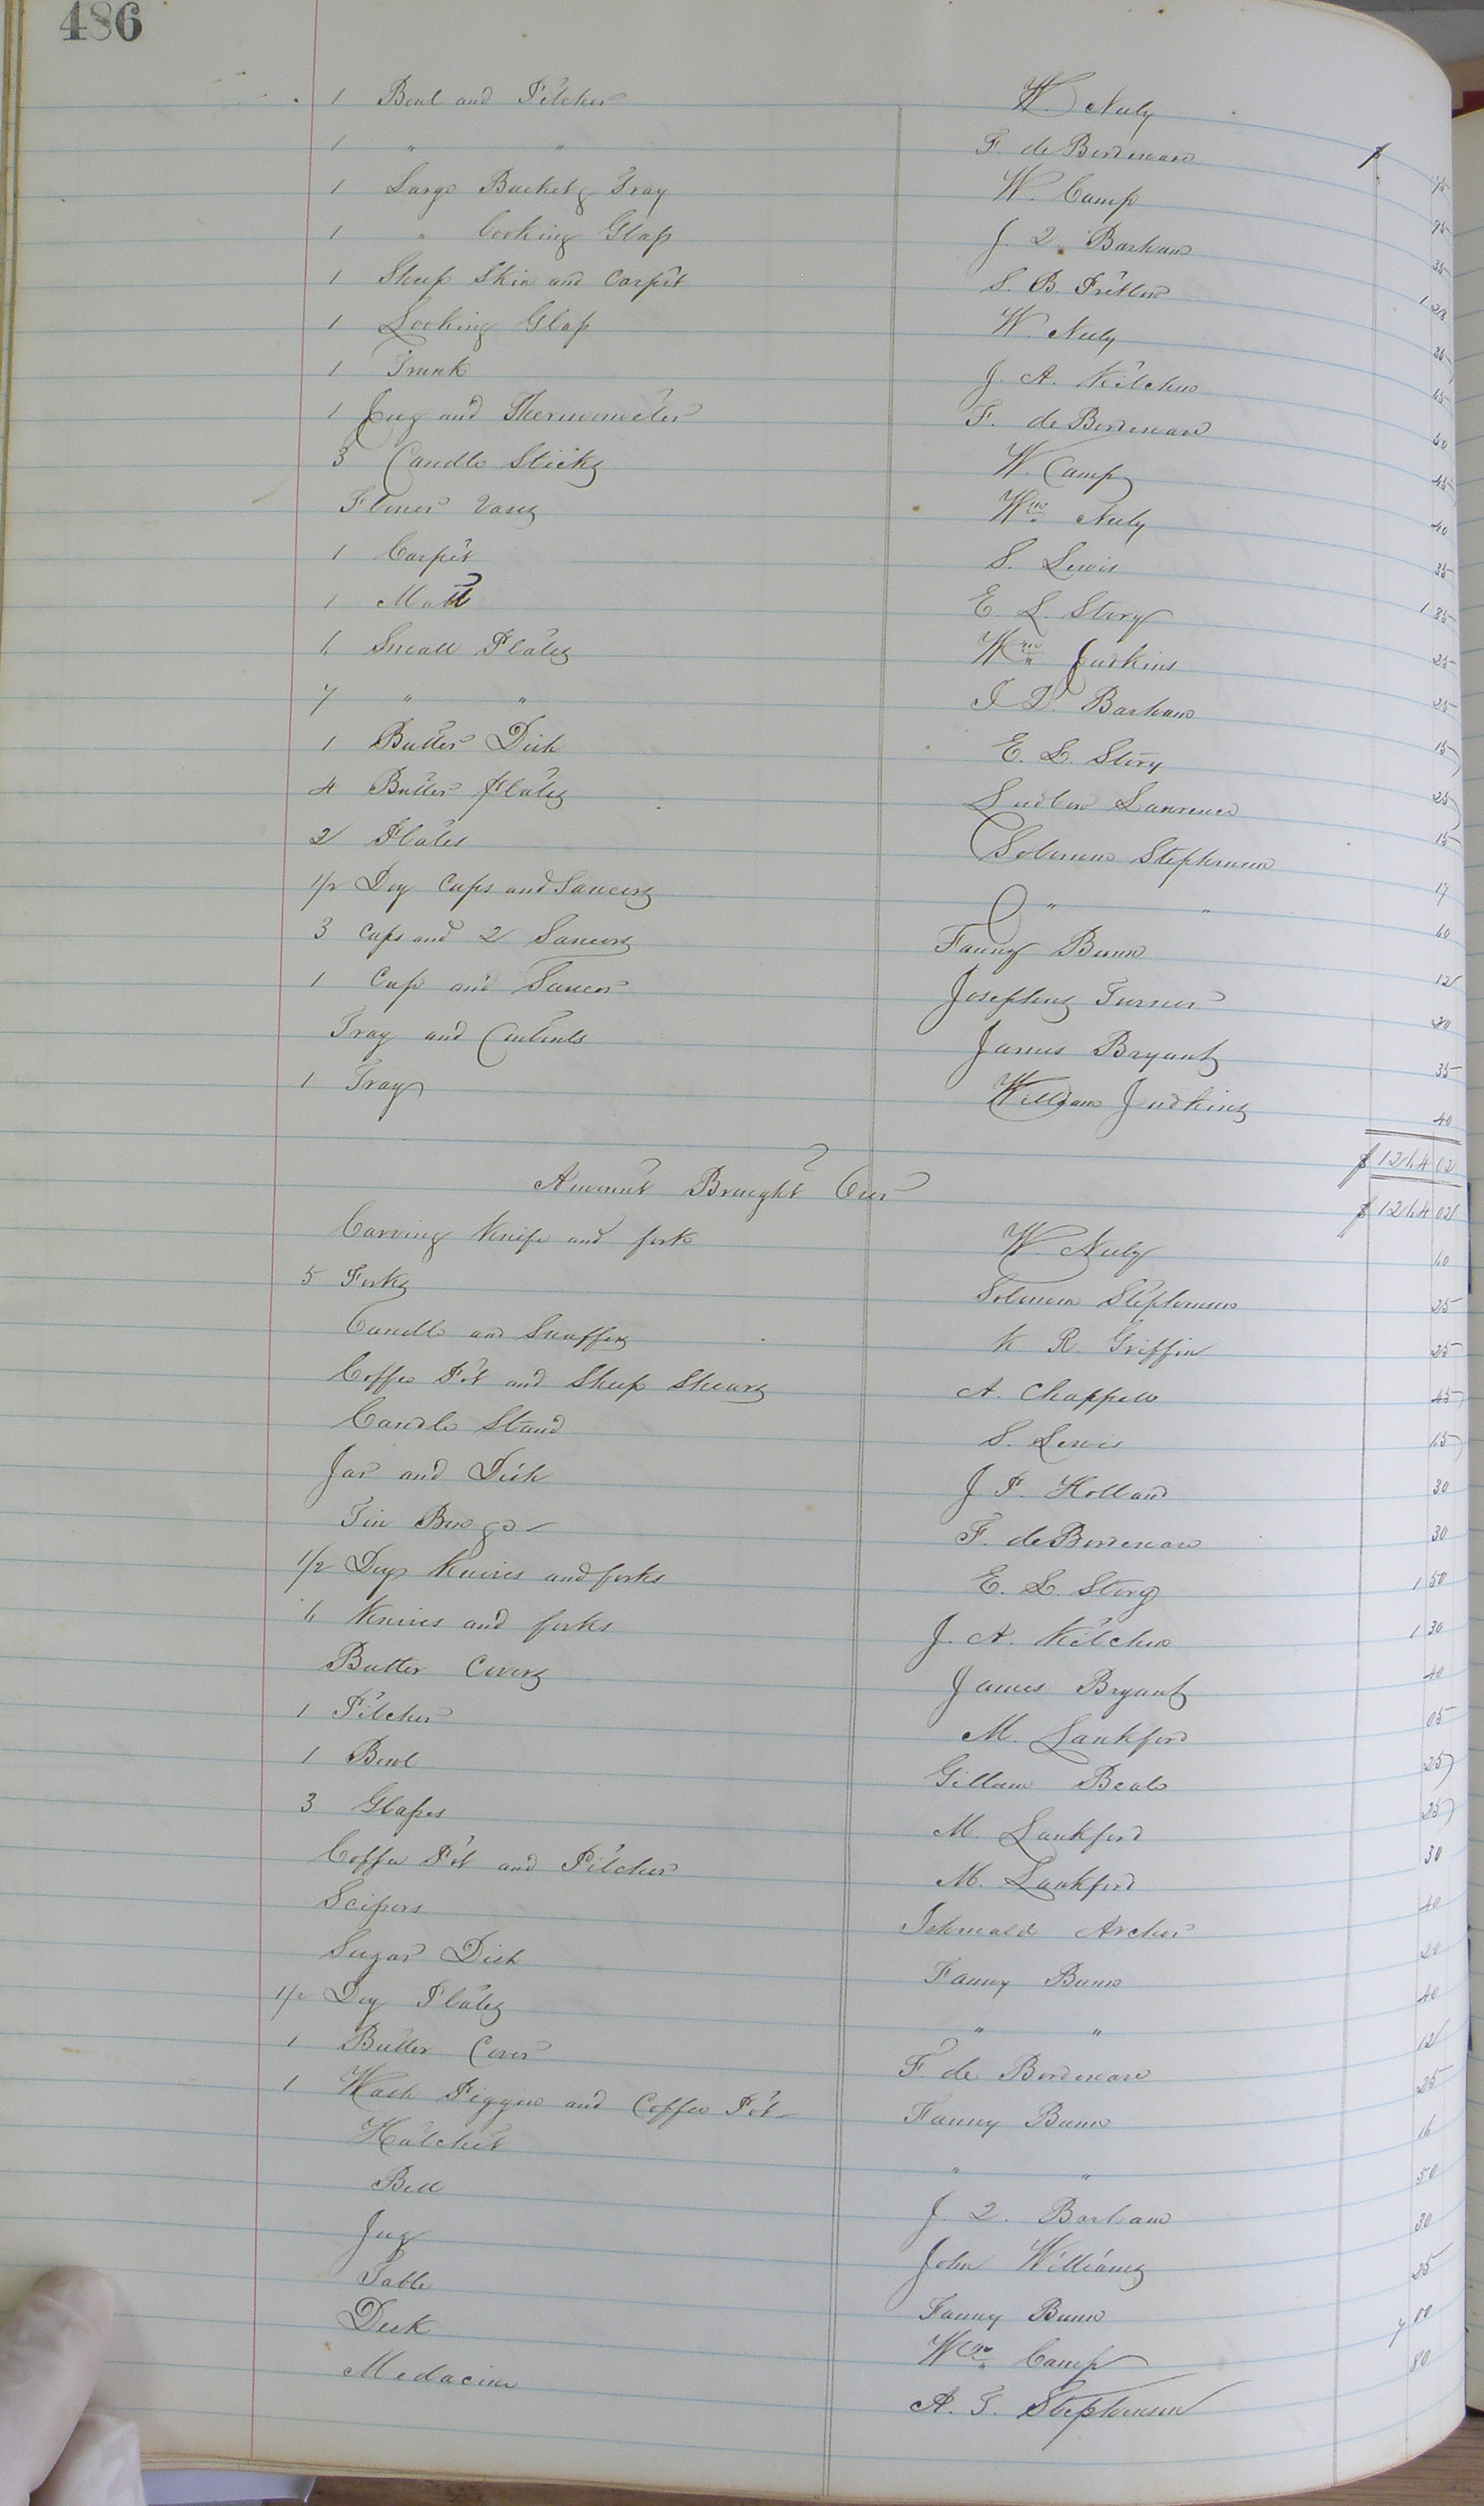 486
1 Bowl and Pitcher W. Neely
1 " " F. de Bordenave $ 75
1 Large Bucket & Tray W. Camp 95
1 " Cooking Glass J. Q. Barham 35
1 Sheep Skin and Carpet S. B. Pretlow 1 28
1 Looking Glass W. Neely 36
1 Trunk J. A. Kitchen 45
1 Jug and Thermometer F. de Bordenave 50
3 Candle Sticks W. Camp 45
Flower Vases Wm Neely 40
1 Carpet S. Lewis 35
1 Matt E. L. Story 1 85
6 Small Plates Wm Judkins 25
7 " " J. Q. Barham 25
1 Butter Dish E. L. Story 15
4 Butter plates Ludlow Lawrence 25
2 Plates Solomon Stephenson 15
1/2 Doz Cups and Saucers " " 17
3 cups and 2 Saucers Fanny Bunn 60
1 Cup and Saucer Josephus Turner 12
Tray and Contents James Bryant 30
1 Tray William Judkins 35
40
$ 1264 02
Amount Brought Over $ 1264 02
Carving Knife and fork W. Neely 60
5 Forks Solomon Stephenson 25
Candle and Snuffers K R. Griffin 25
Coffee Pot and Sheep Shears A. Chappell 45
Candle Stand S. Lewis 65
Jar and Dish J. P. Holland 30
Tin F. de Bordenave 30
1/2 Doz Knives and forks E. L. Story 1 50
6 Knives and forks J. A. Kitchen 1 30
Butter Covers James Bryant 40
1 Pitcher M. Lankford 05
1 Bowl Gillam Beale 25
3 Glasses M. Lankford 25
Coffee Pot and Pitcher M. Lankford 30
Scissors Ishmald Archer 40
Sugar Dish Fanny Bunn 20
1/2 Doz Plates " " 40
1 Butter Cover F de Bordenave 12
1 Wash Piggin and Coffee Pot Fanny Bunn 25
Hatchet " " 16
Bell J. Q. Barham 50
Jug John Williams 30
Table Fanny Bunn 25
Desk Wm Camp 7 00
Medacine A. T. Stephenson 80